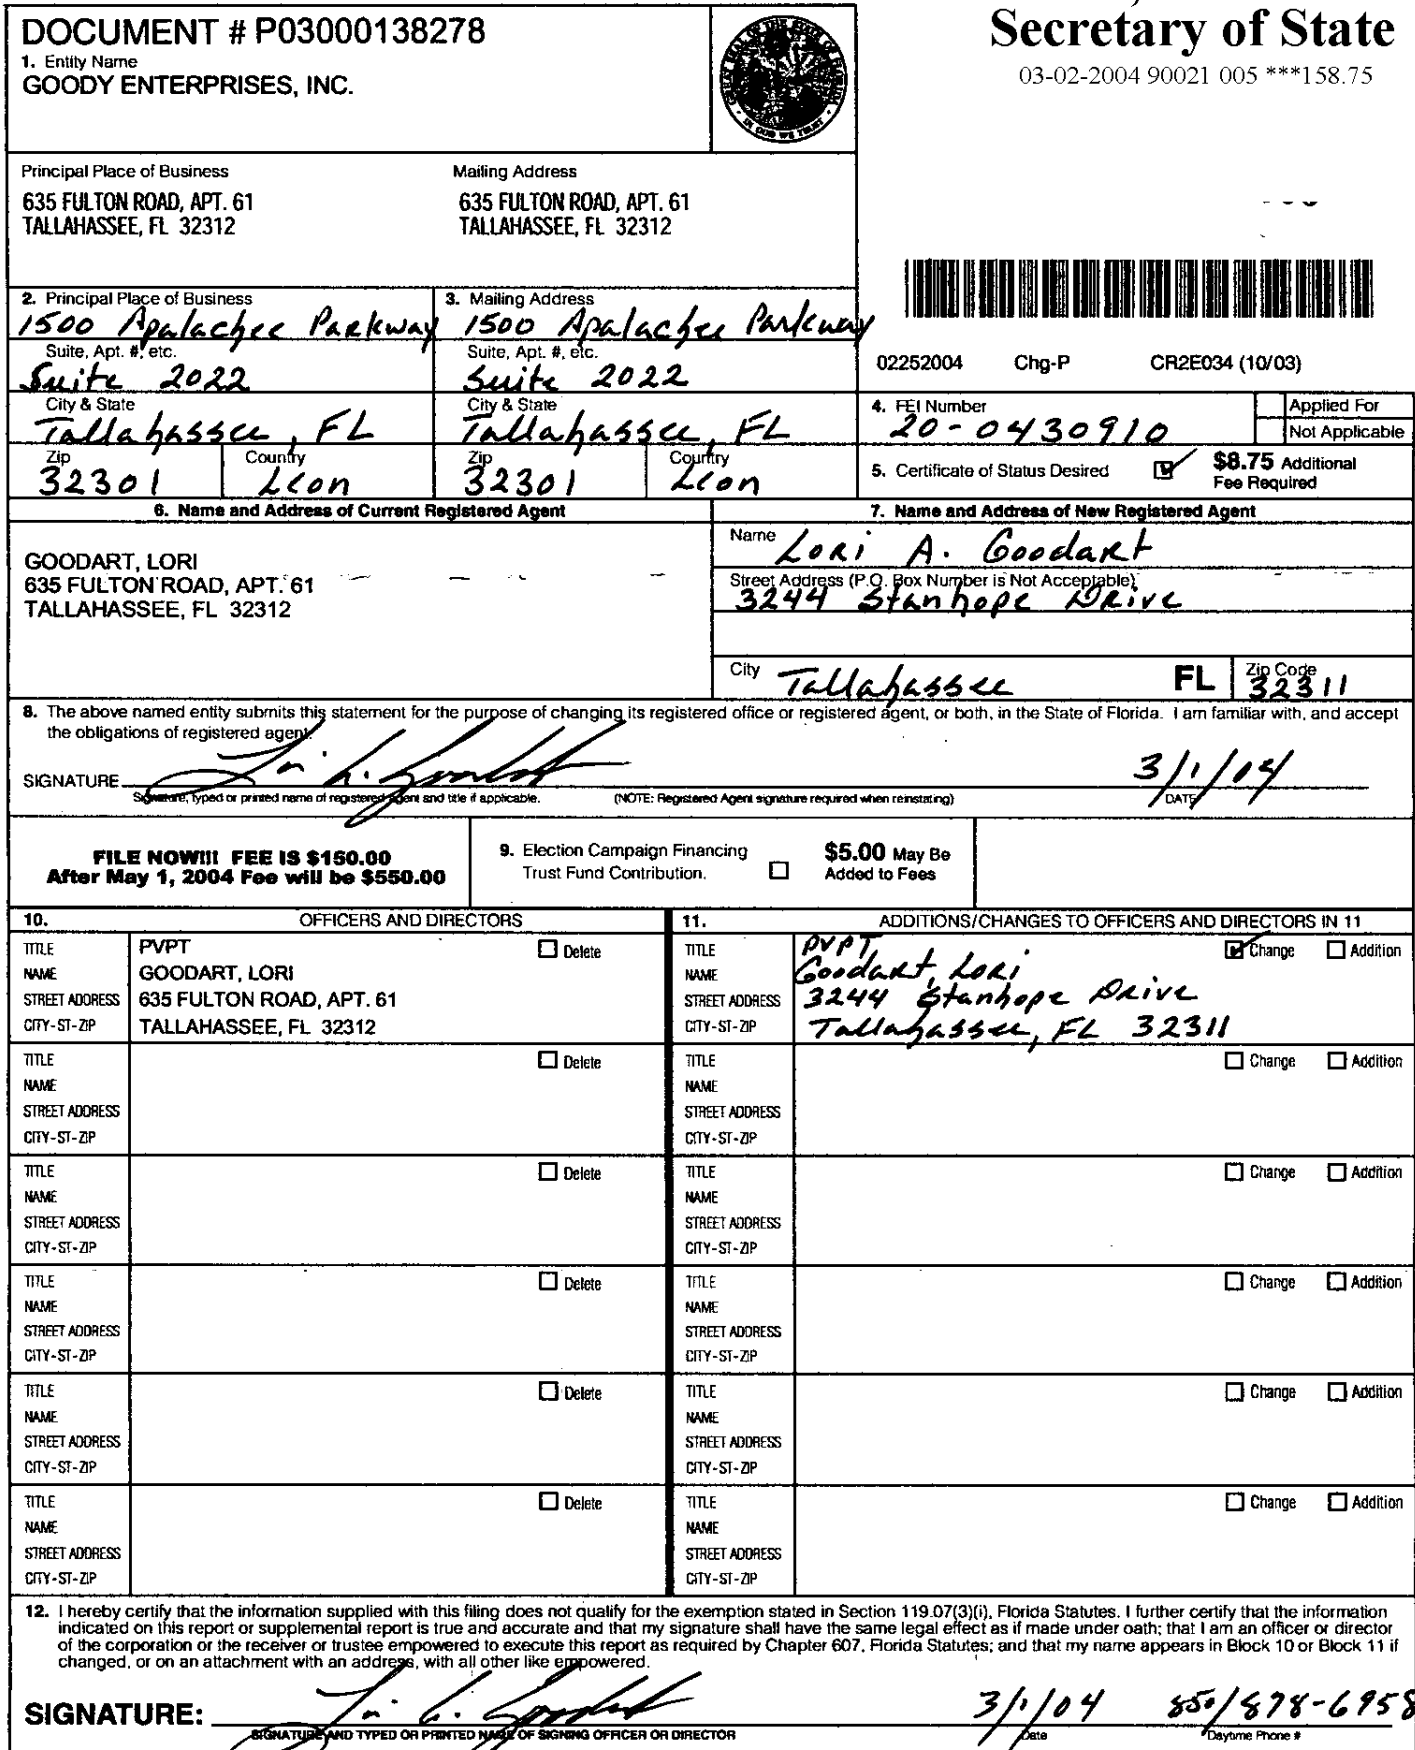 DOCUMENT # P03000138278
1. Entity Name
GOODY ENTERPRISES, INC.
Secretary of State
03-02-2004 90021 005 ***158.75
Principal Place of Business
635 FULTON ROAD, APT. 61
TALLAHASSEE, FL 32312
Mailing Address
635 FULTON ROAD, APT. 61
TALLAHASSEE, FL 32312
2. Principal Place of Business
1500 Apalachee Parkway
Suite, Apt. #, etc.
Suite 2022
City & State
Tallahassee, FL
Zip
32301
Country
Leon
3. Mailing Address
1500 Apalachee Parkway
Suite, Apt. #, etc.
Suite 2022
City & State
Tallahassee, FL
Zip
32301
Country
Leon
02252004 Chg-P CR2E034 (10/03)
4. FEI Number
20-0430910
Applied For
Not Applicable
5. Certificate of Status Desired
$8.75 Additional
Fee Required
6. Name and Address of Current Registered Agent
GOODART, LORI
635 FULTON ROAD, APT. 61
TALLAHASSEE, FL 32312
7. Name and Address of New Registered Agent
Name
Lori A. Goodart
Street Address (P.O. Box Number is Not Acceptable)
3244 Stanhope Drive
City Tallahassee FL Zip Code
32311
8. The above named entity submits this statement for the purpose of changing its registered office or registered agent, or both, in the State of Florida. I am familiar with, and accept
the obligations of registered agent.
SIGNATURE Lori A. Goodart 3/1/04
Signature, typed or printed name of registered agent and title if applicable. (NOTE: Registered Agent signature required when reinstating) DATE
FILE NOW!!! FEE IS $150.00
After May 1, 2004 Fee will be $550.00
9. Election Campaign Financing
Trust Fund Contribution.
$5.00 May Be
Added to Fees
10. OFFICERS AND DIRECTORS
TITLE PVPT Delete
NAME GOODART, LORI
STREET ADDRESS 635 FULTON ROAD, APT. 61
CITY-ST-ZIP TALLAHASSEE, FL 32312
TITLE Delete
NAME
STREET ADDRESS
CITY-ST-ZIP
TITLE Delete
NAME
STREET ADDRESS
CITY-ST-ZIP
TITLE Delete
NAME
STREET ADDRESS
CITY-ST-ZIP
TITLE Delete
NAME
STREET ADDRESS
CITY-ST-ZIP
TITLE Delete
NAME
STREET ADDRESS
CITY-ST-ZIP
11. ADDITIONS/CHANGES TO OFFICERS AND DIRECTORS IN 11
TITLE PVPT Change Addition
NAME Goodart, Lori
STREET ADDRESS 3244 Stanhope Drive
CITY-ST-ZIP Tallahassee, FL 32311
TITLE Change Addition
NAME
STREET ADDRESS
CITY-ST-ZIP
TITLE Change Addition
NAME
STREET ADDRESS
CITY-ST-ZIP
TITLE Change Addition
NAME
STREET ADDRESS
CITY-ST-ZIP
TITLE Change Addition
NAME
STREET ADDRESS
CITY-ST-ZIP
TITLE Change Addition
NAME
STREET ADDRESS
CITY-ST-ZIP
12. I hereby certify that the information supplied with this filing does not qualify for the exemption stated in Section 119.07(3)(i), Florida Statutes. I further certify that the information
indicated on this report or supplemental report is true and accurate and that my signature shall have the same legal effect as if made under oath; that I am an officer or director
of the corporation or the receiver or trustee empowered to execute this report as required by Chapter 607, Florida Statutes; and that my name appears in Block 10 or Block 11 if
changed, or on an attachment with an address, with all other like empowered.
SIGNATURE: Lori A. Goodart 3/1/04 850/878-6958
SIGNATURE AND TYPED OR PRINTED NAME OF SIGNING OFFICER OR DIRECTOR Date Daytime Phone #